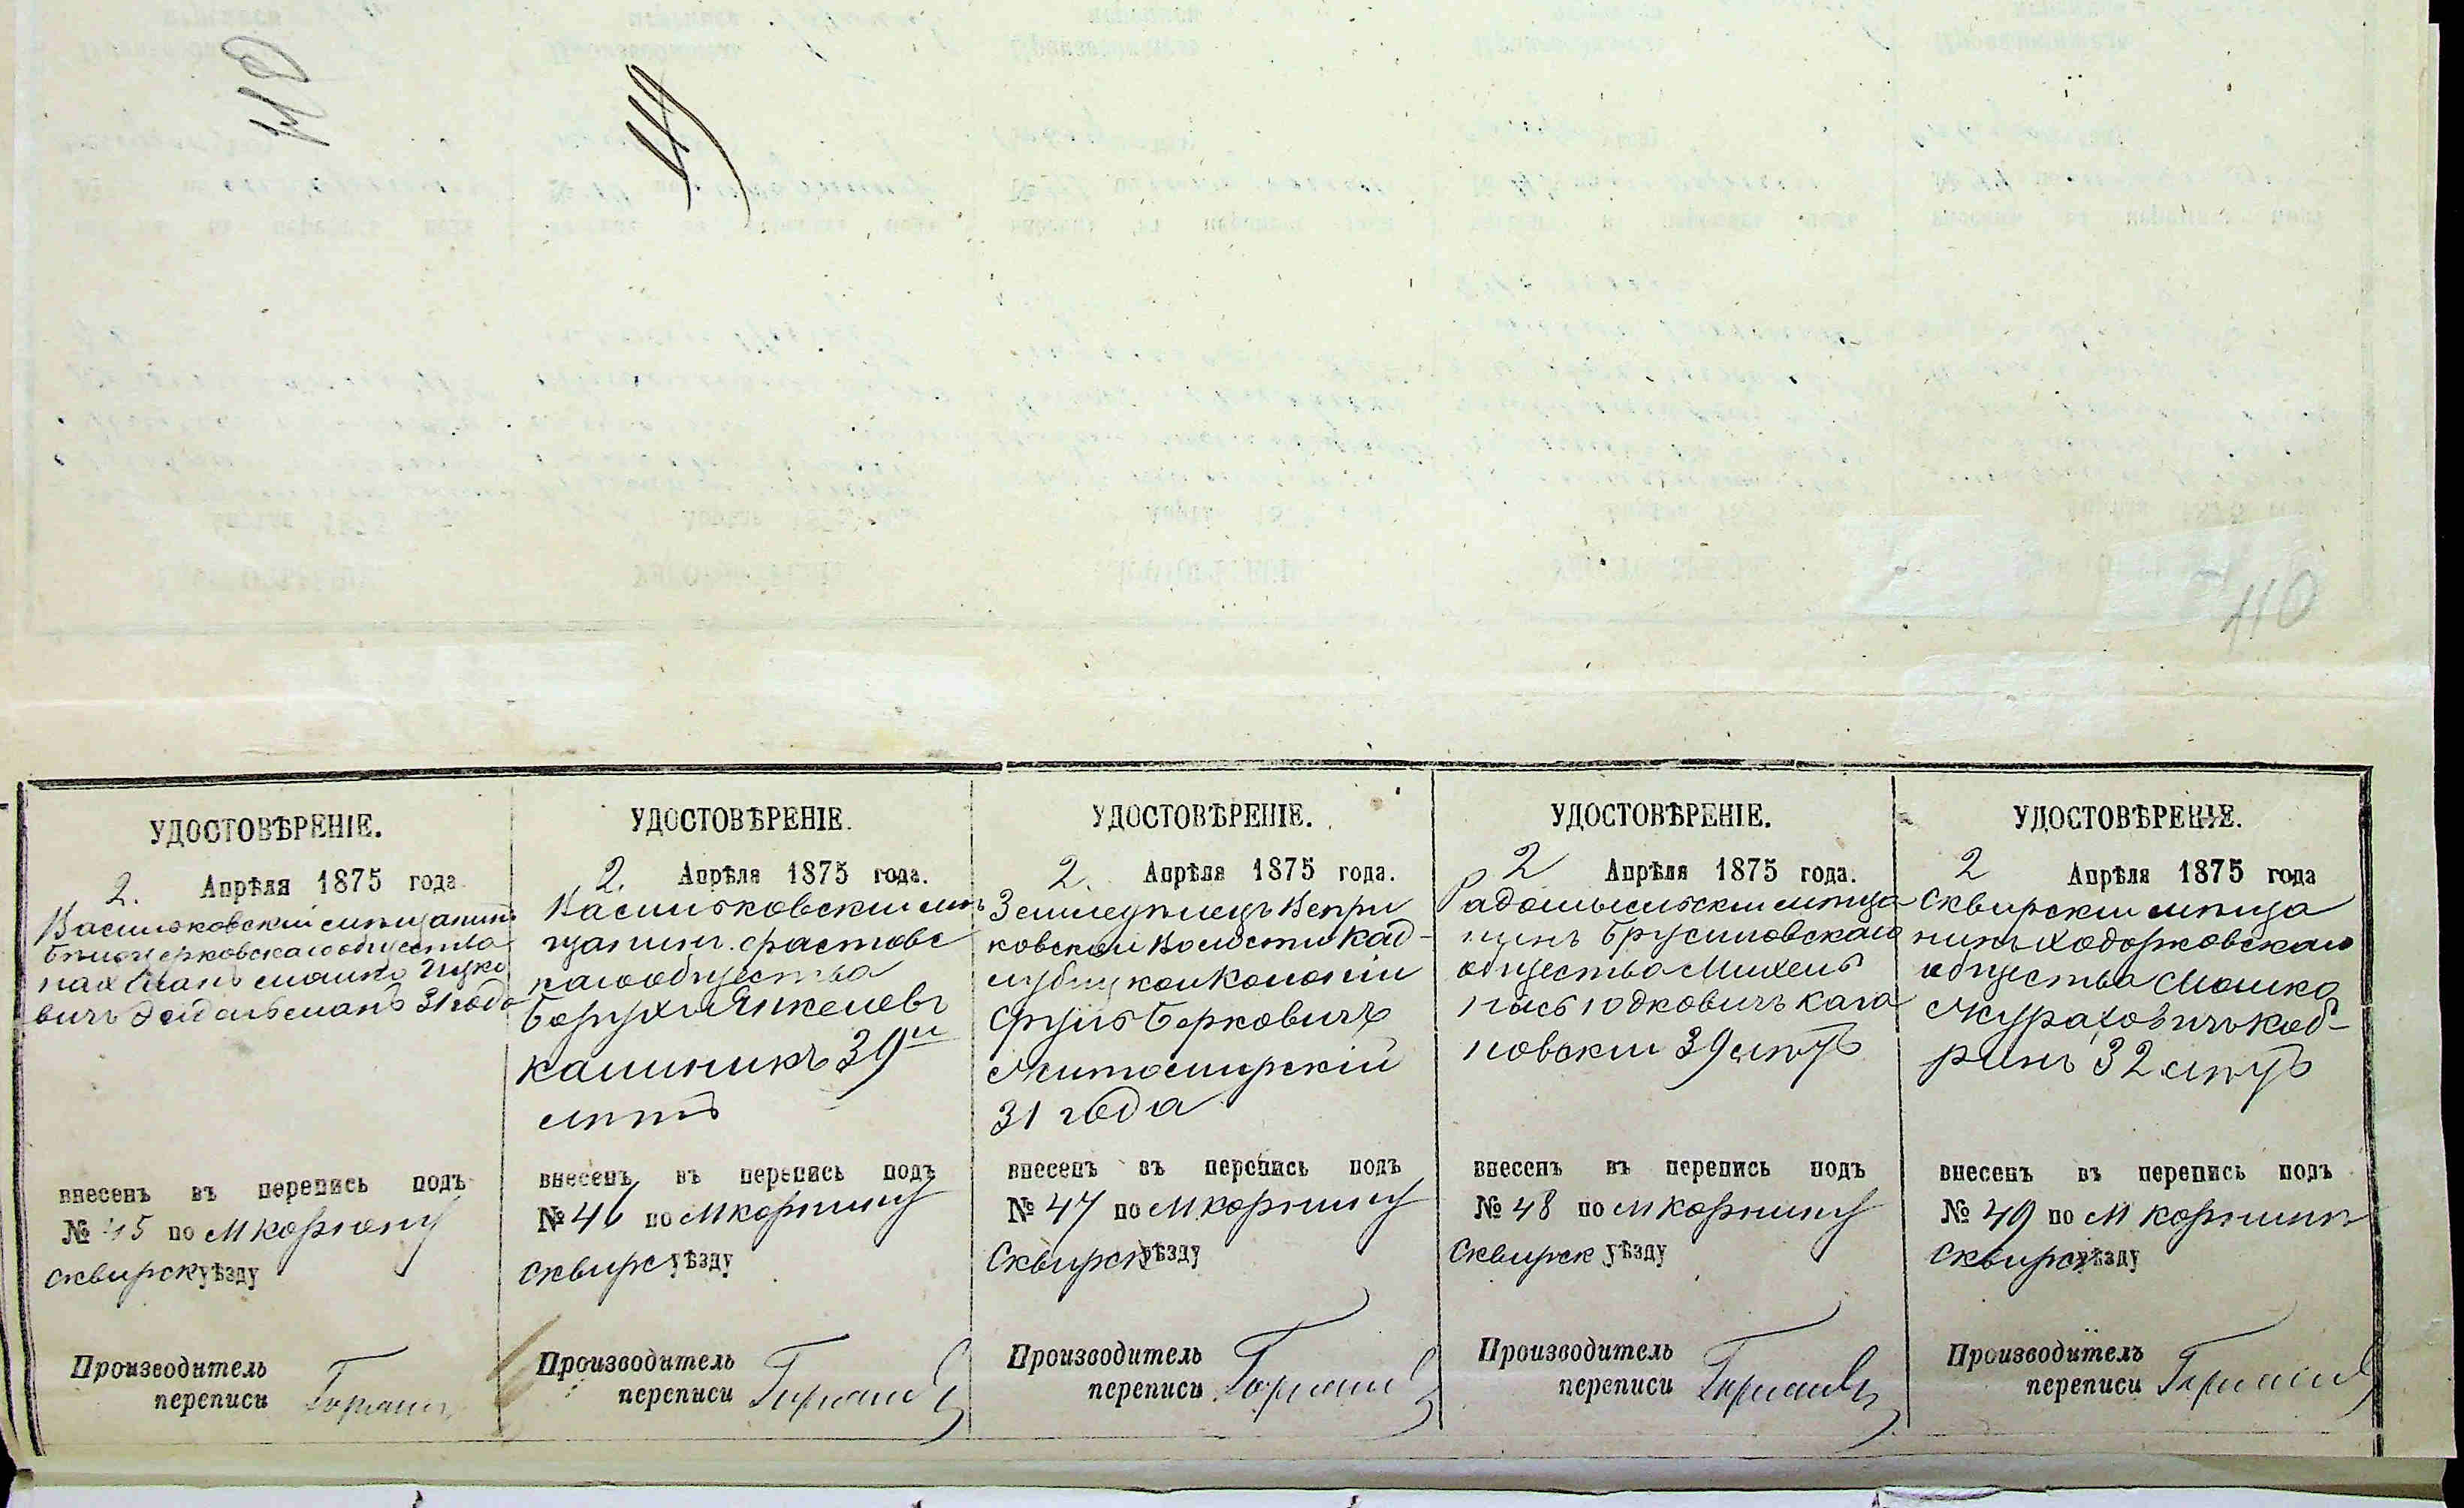 110
УДОСТОВѢРЕНІЕ.
2. Апрѣля 1875 года
Васильковскій мѣщанинъ
Бѣлоцерковскаго общества
31 годъ
внесенъ въ перепись подъ
№ 45 по М Корнину
Сквирск уѣзду
Производитель
переписи
УДОСТОВѢРЕНІЕ.
2. Апрѣля 1875 года.
Васильковский мѣ
щанинъ Фастовс
каго общества
Борухъ Янкелевъ
Калиникъ 39и
лѣтъ
внесенъ въ перепись подъ
№ 46 по М Корнину
Сквирс уѣзду
Производитель
переписи
УДОСТОВѢРЕНІЕ.
2. Апрѣля 1875 года.
Земледѣлецъ Вепри
ковской Волости Кад-
лубицкой Колоніи
Сруль Берковичъ
Житомирскій
31 года
внесенъ въ перепись подъ
№ 47 по М Корнину
Сквирск уѣзду
Производитель
переписи
УДОСТОВѢРЕНІЕ.
2 Апрѣля 1875 года.
Радомысльский мѣща
нинъ Брусиловскаго
общества Михель
Юдковичъ Кага
новский 39 лѣтъ
внесенъ въ перепись подъ
№ 48 по М Корнину
Сквирск уѣзду
Производитель
переписи
УДОСТОВѢРЕНІЕ.
2 Апрѣля 1875 года
Сквирский мѣща
нинъ Ходорковскаго
общества Мошко
Коб-
ринъ 32 лѣтъ
внесенъ въ перепись подъ
№ 49 по М Корнину
Сквирск уѣзду
Производитель
переписи